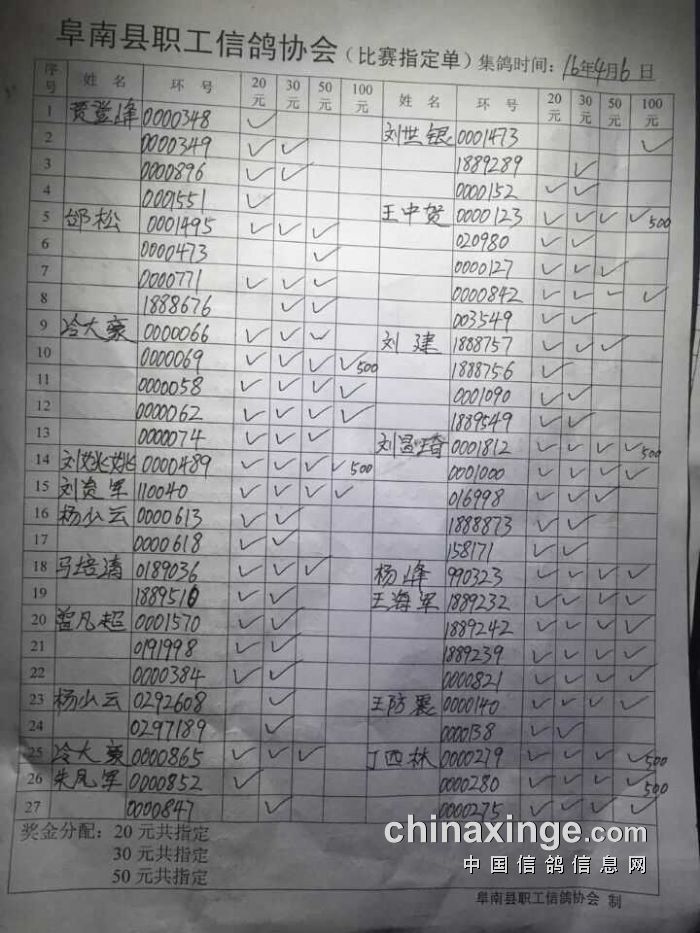 阜南县职工信鸽协会(比赛指定单)集鸽时间:16年4月6日
序号 姓名 环号 20元 30元 50元 100元 姓名 环号 20元 30元 50元 100元
1 贾登峰 0000348 ✓ 刘世银 0001473 ✓
2 0000349 ✓ ✓ 1889289 ✓
3 0000896 ✓ ✓ 0000152 ✓ ✓
4 0001551 ✓ 王中贺 0000123 ✓ ✓ ✓ ✓500
5 邰松 0001495 ✓ ✓ ✓ 020980 ✓ ✓
6 0000473 ✓ 0000127 ✓ ✓ ✓
7 0000771 ✓ ✓ ✓ 0000842 ✓ ✓ ✓ ✓
8 1888676 ✓ ✓ 003549 ✓ ✓
9 冷大豪 0000066 ✓ ✓ ✓ 刘建 1888757 ✓ ✓ ✓
10 0000069 ✓ ✓ ✓ ✓500 1888756 ✓
11 0000058 ✓ ✓ ✓ ✓ 0001090 ✓ ✓
12 0000062 ✓ ✓ ✓ ✓ 1889549 ✓ ✓
13 0000074 ✓ ✓ ✓ 刘昌琦 0001812 ✓ ✓ ✓ ✓500
14 刘姚姚 0000489 ✓ ✓ ✓ ✓500 0001000 ✓ ✓ ✓ ✓
15 刘贵军 110040 ✓ ✓ ✓ ✓ 016998 ✓ ✓ ✓
16 杨少云 0000613 ✓ ✓ 1888873 ✓ ✓
17 0000618 ✓ ✓ 158171 ✓ ✓
18 马培清 0189036 ✓ ✓ ✓ 杨峰 990323 ✓ ✓ ✓ ✓
19 1889510 ✓ ✓ 王海军 1889232 ✓ ✓ ✓ ✓
20 曾凡超 0001570 ✓ ✓ 1889242 ✓ ✓ ✓ ✓
21 0191998 ✓ ✓ 1889239 ✓ ✓ ✓ ✓
22 0000384 ✓ ✓ 0000821 ✓ ✓ ✓ ✓
23 杨少云 0292608 ✓ 王防震 0000140 ✓ ✓ ✓ ✓
24 0297189 ✓ 0000138 ✓ ✓
25 冷大豪 0000865 ✓ ✓ ✓ 丁西林 0000279 ✓ ✓ ✓ ✓500
26 朱凡军 0000852 ✓ 0000280 ✓ ✓ ✓ ✓500
27 0000847 ✓ 0000275 ✓ ✓ ✓ ✓
奖金分配:20元共指定
30元共指定
50元共指定
chinaxinge.com
中国信鸽信息网
阜南县职工信鸽协会 制